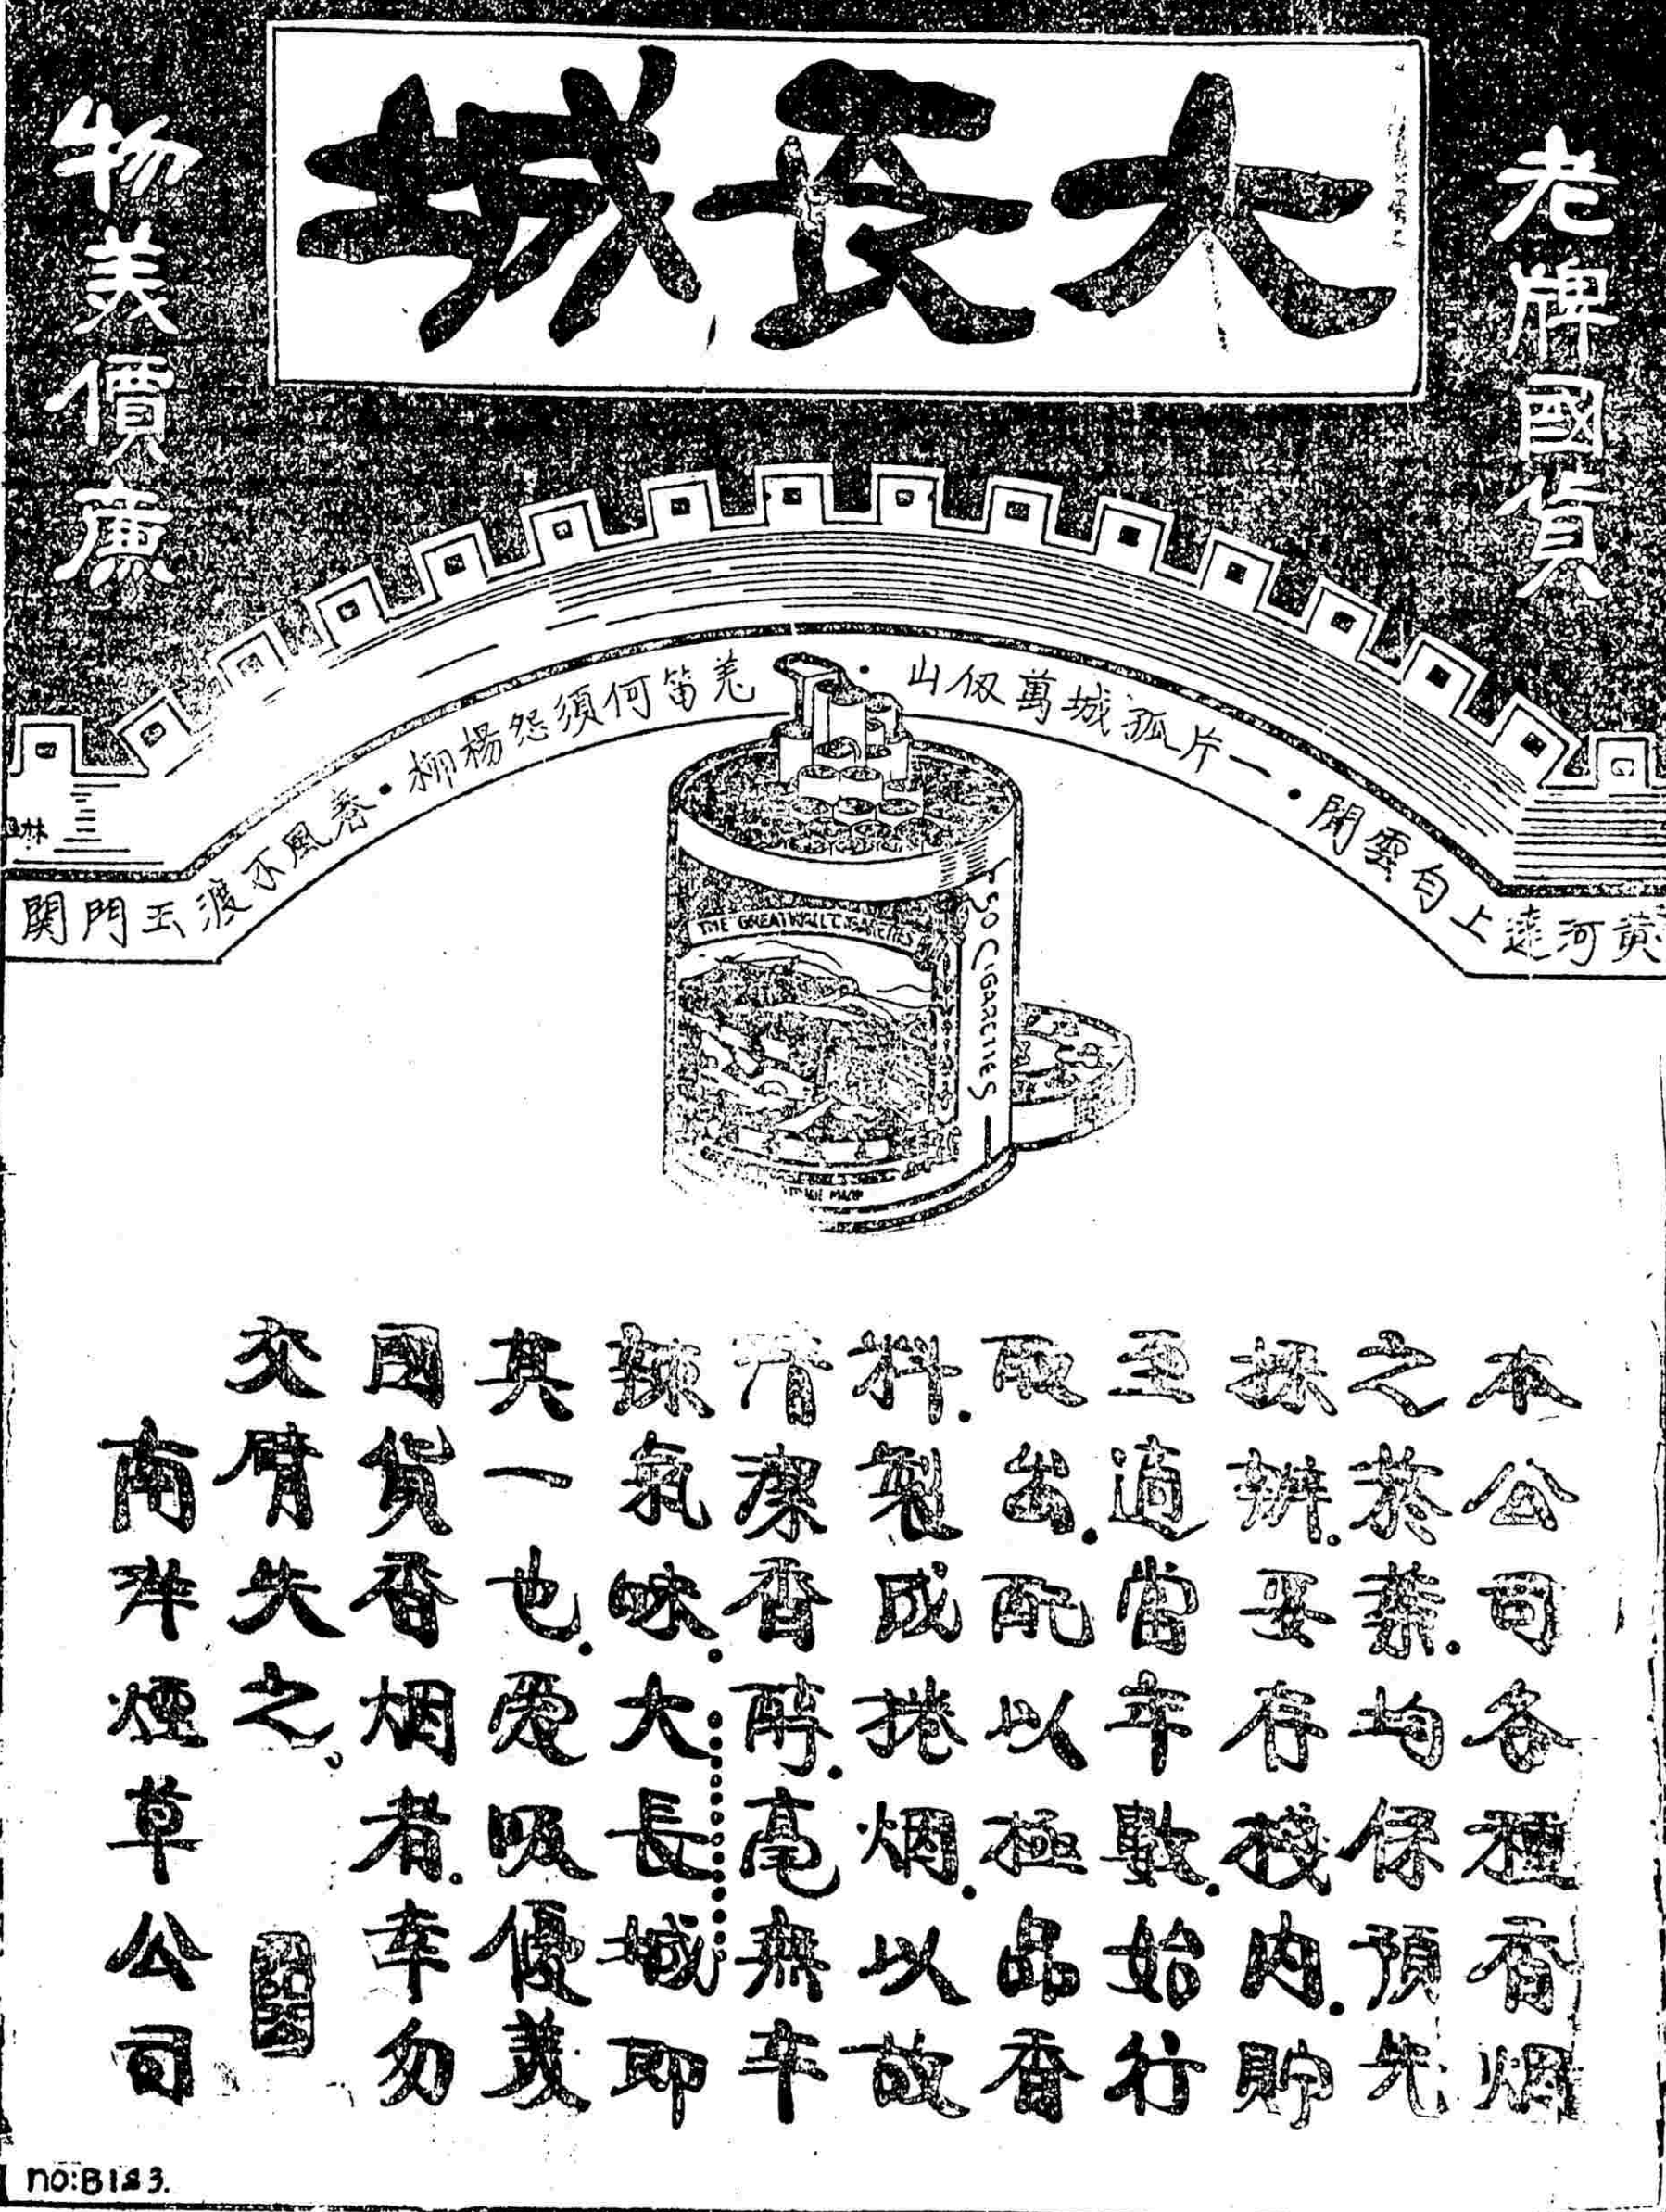 大長城
老牌國貨
物美價廉
黄河遠上白雲間・一片孤城萬仞山・羌笛何須怨楊柳・春風不渡玉門関
THE GREATWALL CIGARETTES
50 CIGARETTES
本公司各種香烟
之菸葉.均係預先
採辦.妥存棧內.貯
至適當年數.始行
取出.配以極品香
料.製成捲烟.以故
清潔香醇.毫無辛
辣氣味.大長城即
其一也.愛吸優美
國貨香烟者.幸勿
交臂失之。
南洋煙草公司
NO:B123.